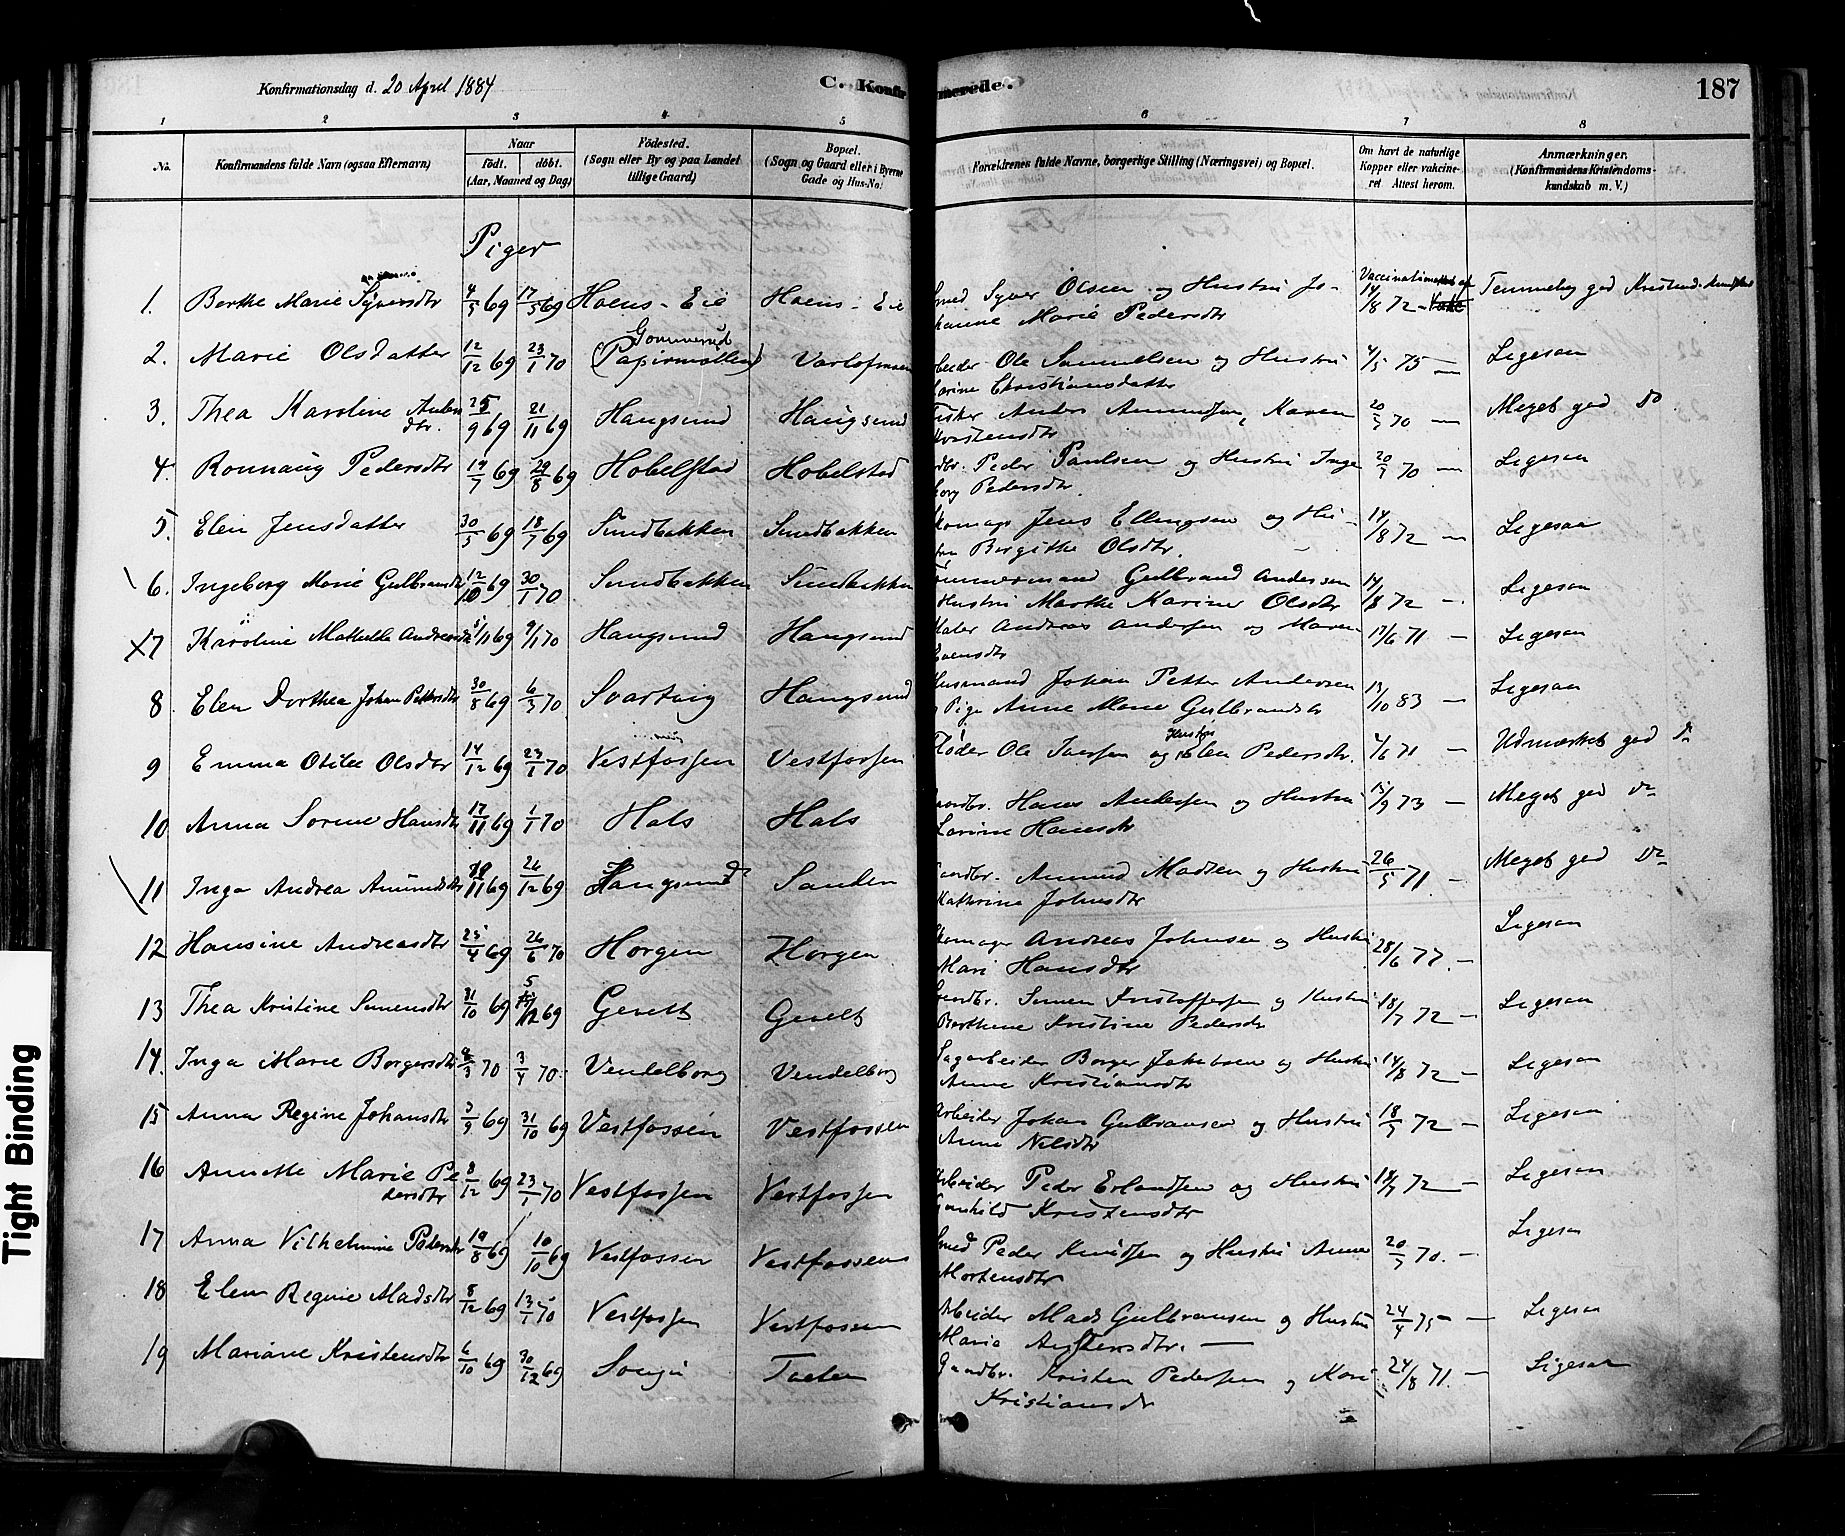 Konfirmationsdag d. 20 April 1884
C. Konfirmerede.
187
1 2 3 4 5 6 7 8
No. Konfirmandens fulde Navn (ogsaa Efternavn) Naar født. døbt. (Aar, Maaned og Dag) Fødested. (Sogn eller By og paa Landet tillige Gaard) Bopæl. (Sogn og Gaard eller i Byerne Gade og Hus-No) Forældrenes fulde Navne, borgerlige Stilling (Næringsvei) og Bopæl. Om havt de naturlige Kopper eller vaccineret Attest herom. Anmærkninger. (Konfirmandens Kristendomskundskab m. V.)
Piger
1. Berthe Marie Syversdtr 4/5 69 17/5 69 Hoens-Eie Hoens-Eie Smed Syver Olsen og Hustru Jo-
hanne Marie Pedersdtr 14/8 72 Temmelig god
2. Marie Olsdatter 12/12 69 23/1 70 Gommerud (Papirmøllen) Ole Samuelsen og Hustru
Christiansdatter 4/5 75 — Ligesaa
3. Thea Karoline Anders
dtr. 25/9 69 21/11 69 Haugsund Haugsund Fisker Anders Amundsen, Karen
Kristensdtr 20/5 70 — Meget god do
4. Ronnaug Pedersdtr 14/7 69 29/8 69 Hobelstad Hobelstad Peder Paulsen og Hustru Inge
borg Pedersdtr. 20/5 70 — Ligesaa
5. Elen Jensdatter 30/5 69 18/7 69 Sundbakken Sundbakken Jens Ellingsen og Hu-
Birgithe Olsdtr. 14/8 72 — Ligesaa
6. Ingeborg Marie Gulbrandsdtr 12/10 69 30/1 70 Sundbakken Sundbakken Tømmermand Gulbrand Andersen
Hustru Marthe Karine Olsdtr 14/8 72 — Ligesaa
7 Karoline Mathilde Andreasdtr /11 69 9/1 70 Haugsund Haugsund Maler Andreas Andersen og Maren
Evensdtr 17/6 71 — Ligesaa
8. Elen Dorthea Johan Pettersdtr 30/8 69 6/3 70 Svartvig Haugsund Husmand Johan Petter Andersen
Pige Anne Marie Gulbrandsdtr 13/10 83 — Ligesaa
9 Emma Otilie Olsdtr 14/12 69 23/1 70 Vestfossen Vestfossen Fløder Ole Iversen og Hustru Elen Pedersdtr. /6 71 — Udmærket god do
10 Anna Sorine Hansdtr 17/11 69 1/1 70 Hals Hals Gaardbr. Hans Andersen og Hustru
Larine Hansdtr 15/9 73 — Meget god do
11 Inga Andrea Amundsdtr /11 69 26/12 69 Haugsund Sanden Amund Madsen og Hustru
Kathrine Johnsdtr 26/5 71. — Meget god do
12 Hansine Andreasdtr 25/4 69 26/6 70 Horgen Horgen Skomager Andreas Johnsen og Hustru
Mari Hansdtr 28/6 77. — Ligesaa
13 Thea Kristine Simensdtr 31/10 69 5/12 69 Gevelt Gevelt Simen Kristoffersen og Hustru
Berthine Kristine Pedersdtr 18/7 72 — Ligesaa
14. Inga Marie Borgersdtr /3 70 3/4 70. Vendelborg Vendelborg Sagarbeider Borger Jakobsen og Hustru
Anne Kristiansdtr 14/8 72 — Ligesaa
15 Anna Regine Johansdtr 3/9 69 31/10 69 Vestfossen Vestfossen Arbeider Johan Gulbransen og Hustru
Anne Nilsdtr 18/7 72 — Ligesaa
16 Annette Marie Pe
dersdtr 8/12 69 23/1 70 Vestfossen Vestfossen Arbeider Peder Erlandsen og Hustru
Gunhild Kristensdtr 18/7 72 — Ligesaa
17 Anna Vilhelmine Pedersdtr 19/8 69 10/10 69 Vestfossen Vestfossen Smed Peder Knudsen og Hustru Anne
Mortensdtr 20/5 70. — Ligesaa
18 Elen Regine Madsdtr 8/12 69 13/1 70 Vestfossen Vestfossen Arbeider Mads Gulbransen og Hustru
Maria Andersdtr. — 24/4 75 — Ligesaa
19 Mariane Kristensdtr 6/10 69 30/12 69 Gaardbr. Kristen Pedersen og Kari
Kristiansdtr 24/8 71. — Ligesaa
Tight Binding